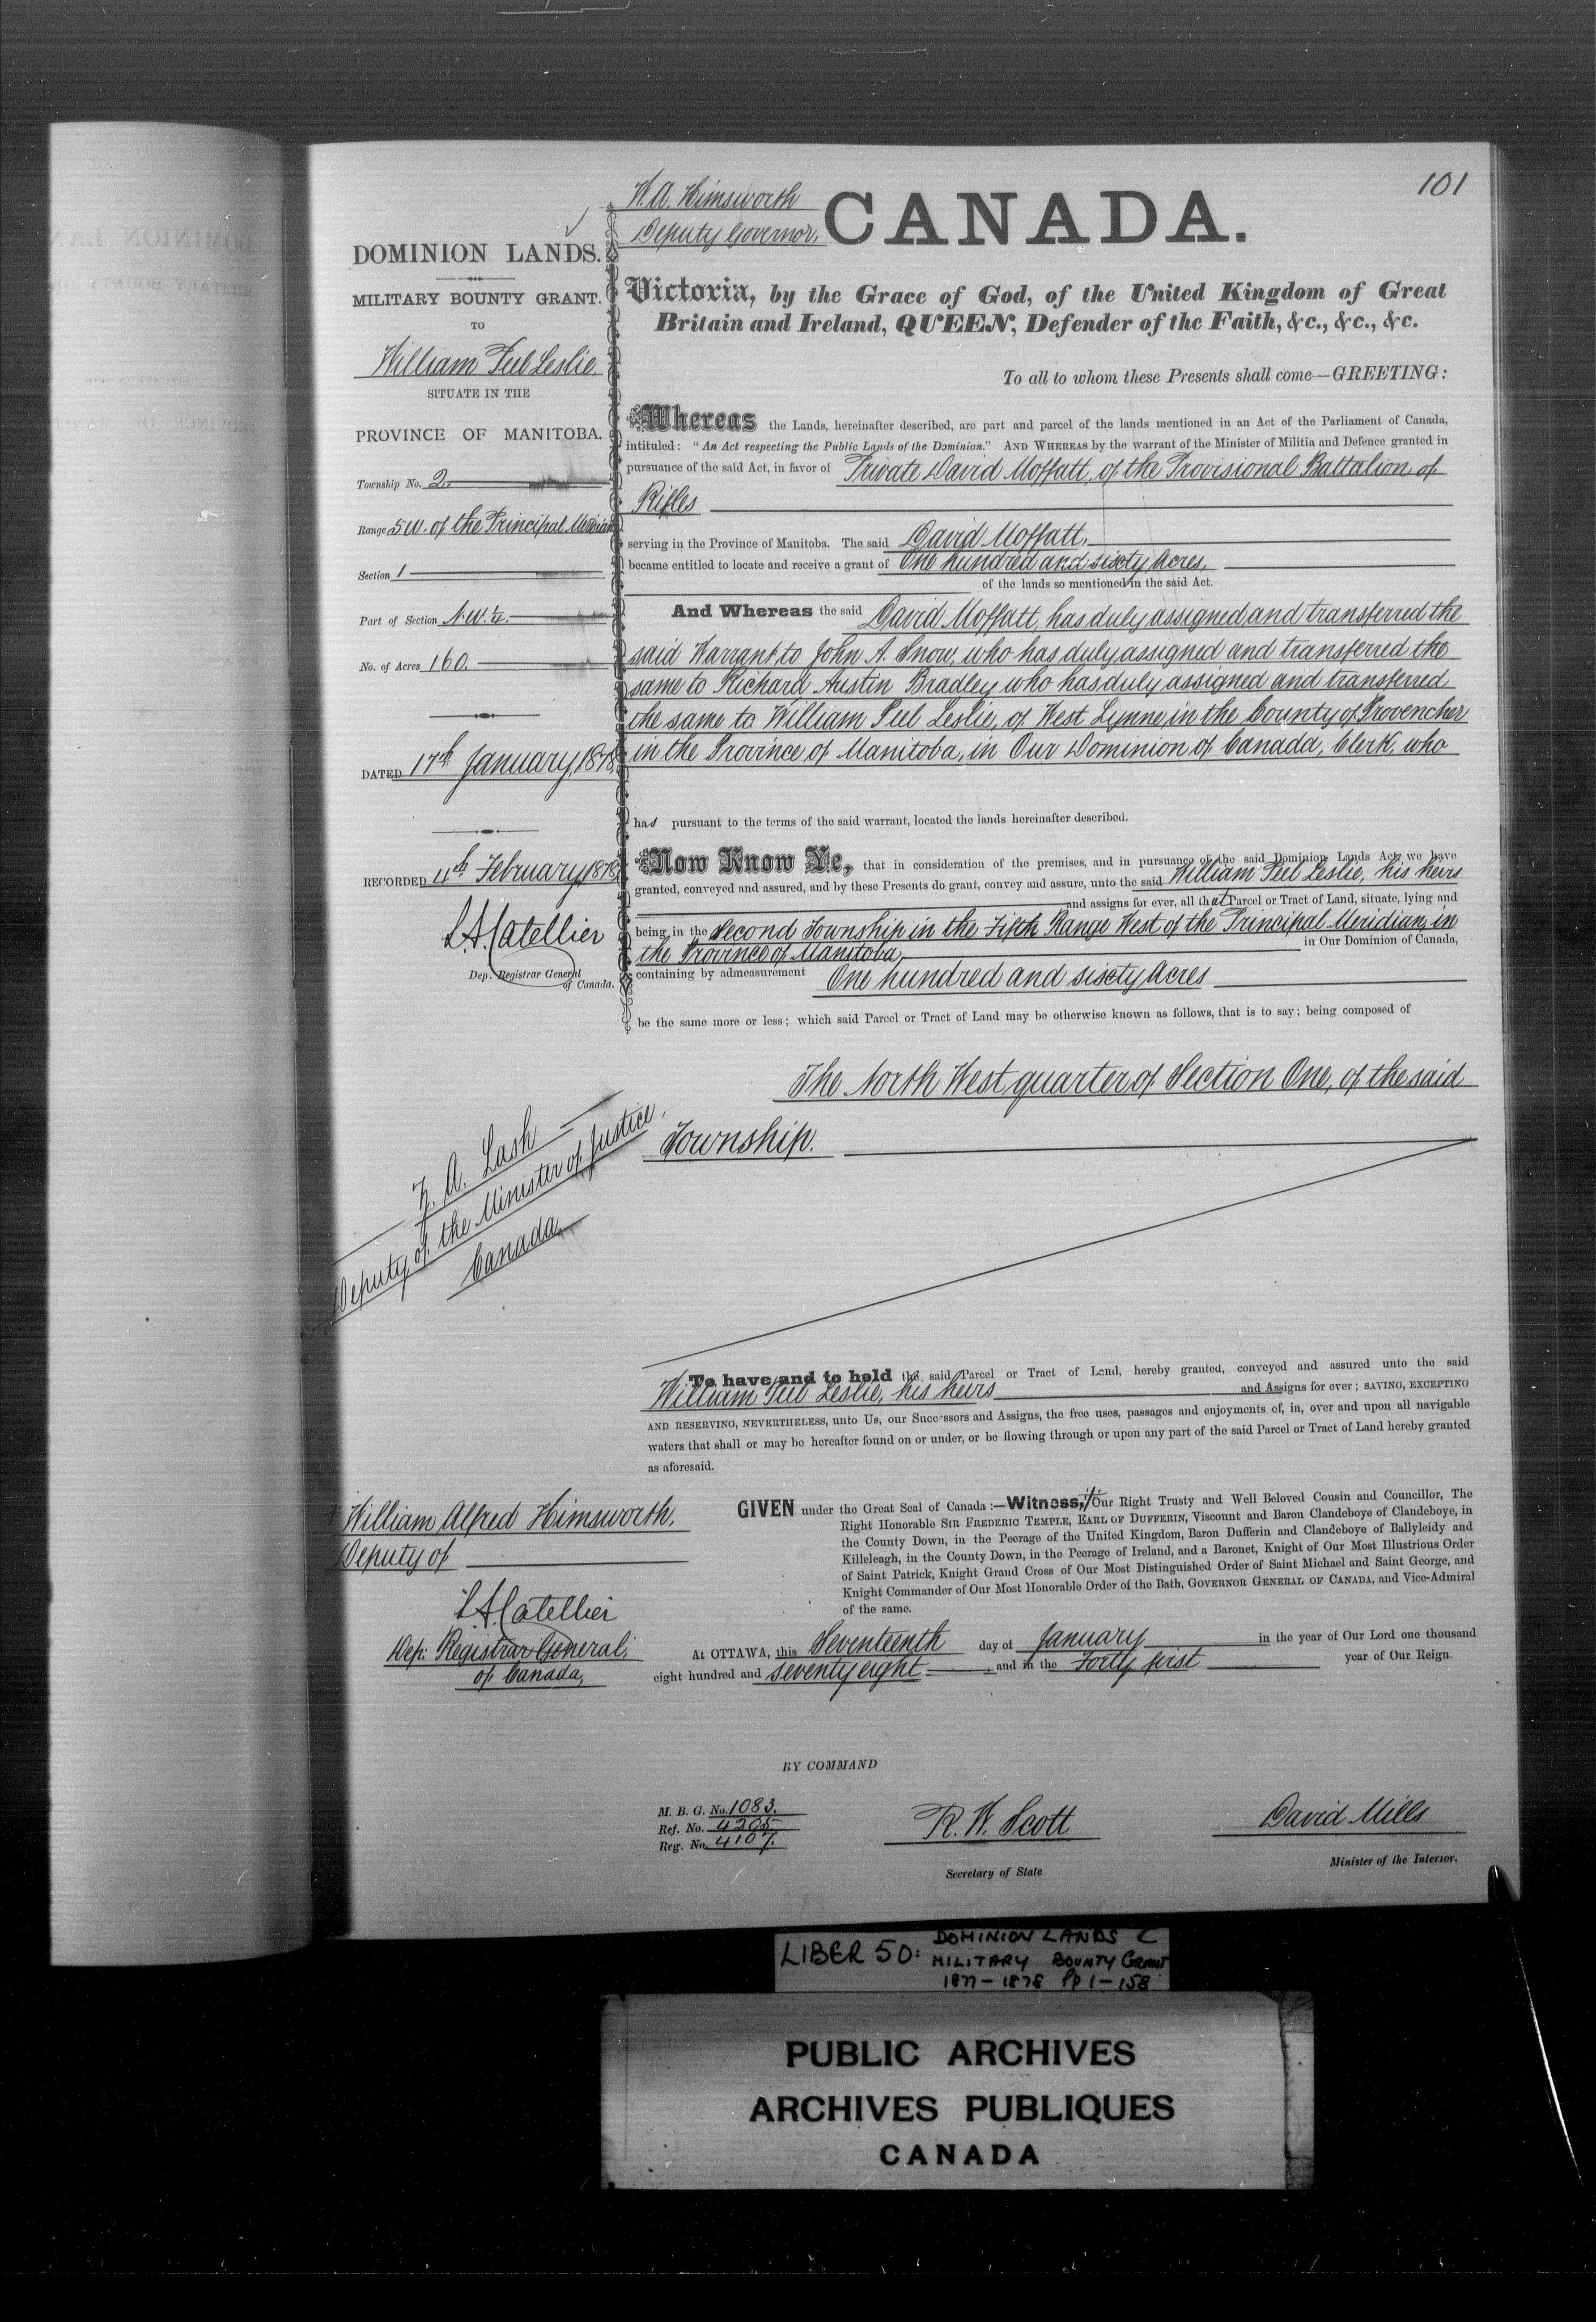 101
W. A. Himsworth
Deputy Governor,
CANADA.
DOMINION LANDS.
MILITARY BOUNTY GRANT.
TO
William Peel Leslie
SITUATE IN THE
PROVINCE OF MANITOBA.
Township No. 2.
Range 5 W. of the Principal Meridian
Section 1
Part of Section N.W. ¼.
No. of Acres 160.
DATED 17th January, 1878,
RECORDED 4th February, 1878,
L A Catellier
Dep. Registrar General
of Canada.
Victoria, by the Grace of God, of the United Kingdom of Great
Britain and Ireland, QUEEN, Defender of the Faith, &c., &c., &c.
To all to whom these Presents shall come—GREETING:
Whereas the Lands, hereinafter described, are part and parcel of the lands mentioned in an Act of the Parliament of Canada,
intituled: "An Act respecting the Public Lands of the Dominion." AND WHEREAS by the warrant of the Minister of Militia and Defence granted in
pursuance of the said Act, in favor of Private David Moffatt, of the Provisional Battalion of
Rifles
serving in the Province of Manitoba. The said David Moffatt,
became entitled to locate and receive a grant of One hundred and sixty Acres,
of the lands so mentioned in the said Act.
And Whereas the said David Moffatt, has duly assigned and transferred the
said Warrant to John A. Snow, who has duly assigned and transferred the
same to Richard Austin Bradley who has duly assigned and transferred
the same to William Peel Leslie, of West Lynne in the County of Provencher
in the Province of Manitoba, in Our Dominion of Canada, Clerk, who
has pursuant to the terms of the said warrant, located the lands hereinafter described.
Now Know Ye, that in consideration of the premises, and in pursuance of the said Dominion Lands Act, we have
granted, conveyed and assured, and by these Presents do grant, convey and assure, unto the said William Peel Leslie, his heirs
and assigns for ever, all that Parcel or Tract of Land, situate, lying and
being in the Second Township in the Fifth Range West of the Principal Meridian, in
the Province of Manitoba, in Our Dominion of Canada,
containing by admeasurement One hundred and sixty Acres
be the same more or less; which said Parcel or Tract of Land may be otherwise known as follows, that is to say; being composed of
The North West quarter of Section One, of the said
Township.
Z. A. Lash
Deputy of the Minister of Justice,
Canada.
To have and to hold the said Parcel or Tract of Land, hereby granted, conveyed and assured unto the said
William Peel Leslie, his heirs and Assigns for ever; SAVING, EXCEPTING
AND RESERVING, NEVERTHELESS, unto Us, our Successors and Assigns, the free uses, passages and enjoyments of, in, over and upon all navigable
waters that shall or may be hereafter found on or under, or be flowing through or upon any part of the said Parcel or Tract of Land hereby granted
as aforesaid.
+ William Alfred Himsworth,
Deputy of
L A Catellier
Dep: Registrar General,
of Canada,
GIVEN under the Great Seal of Canada:—Witness, + Our Right Trusty and Well Beloved Cousin and Councillor, The
Right Honorable SIR FREDERIC TEMPLE, EARL OF DUFFERIN, Viscount and Baron Clandeboye of Clandeboye, in
the County Down, in the Peerage of the United Kingdom, Baron Dufferin and Clandeboye of Ballyleidy and
Killeleagh, in the County Down, in the Peerage of Ireland, and a Baronet, Knight of Our Most Illustrious Order
of Saint Patrick, Knight Grand Cross of Our Most Distinguished Order of Saint Michael and Saint George, and
Knight Commander of Our Most Honorable Order of the Bath, GOVERNOR GENERAL OF CANADA, and Vice-Admiral
of the same.
At OTTAWA, this Seventeenth day of January in the year of Our Lord one thousand
eight hundred and seventy eight, and in the Forty first year of Our Reign.
BY COMMAND
M. B. G. No. 1083.
Ref. No. 4205
Reg. No. 4107.
R. W. Scott
Secretary of State
David Mills
Minister of the Interior.
LIBER 50: DOMINION LANDS C
MILITARY BOUNTY GRANT
1877-1878 Pp 1-158
PUBLIC ARCHIVES
ARCHIVES PUBLIQUES
CANADA